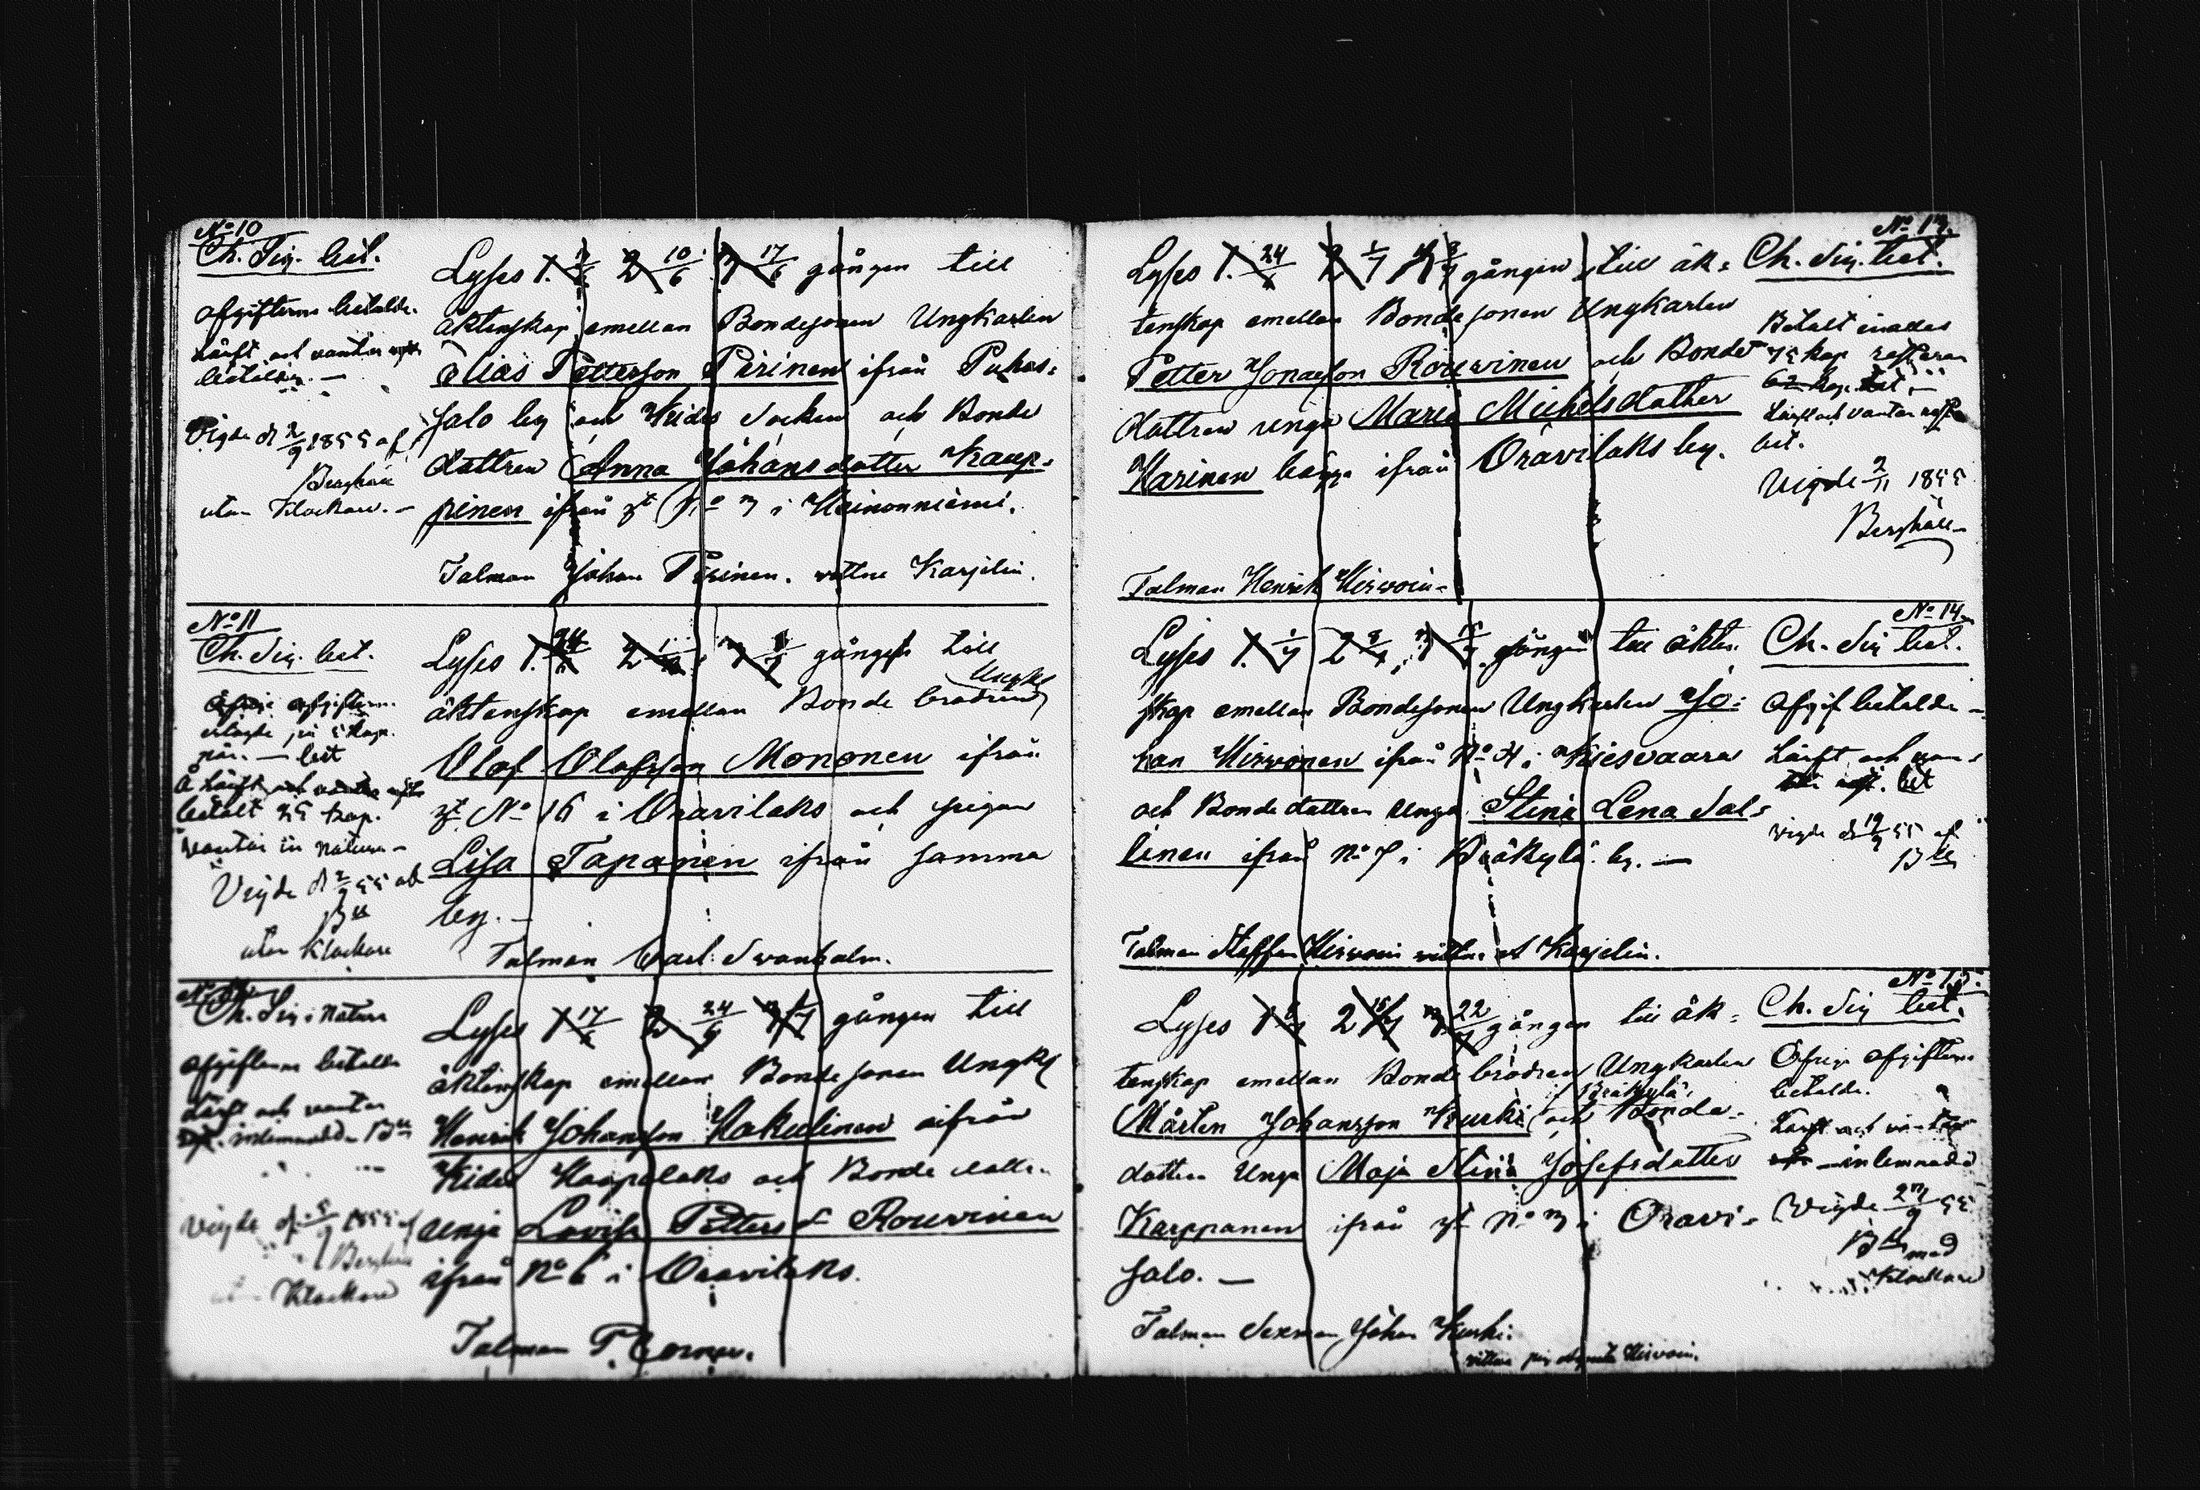 No 10
Ch. Sig. bet.
afgifterna betalde.
Lärft och vantar
betalda. —
Vigde d 2/9 1855 af
Berghäll
utan Klockare. —
Lyses 1. 3/6 2 10/6 3 17/6 gången till
äktenskap emellan Bondesonen Ungkarlen
Elias Petterson Pirinen ifrån Puhos-
salo by och Kides Socken och Bonde
dottren Anna Johansdotter Kaup-
pinen ifrån No 3 i Heinoniemi.
Talman Johan Pirinen. vittne Karjelin.
No 11
Ch. Sig. bet.
afgifterna
erlagde
bet
Lärft och vantar
betalt 25 kop.
vantar in natura —
Vigde d 2/9 55 af
Bll
utan Klockare
Lyses 1. 24/6 2 1/7 3 8/7 gången till
äktenskap emellan Bonde brodren Ungkl
Olof Olofsson Mononen ifrån
No 16 i Oravilaks och pigan
Lisa Tapanen ifrån samma
by. —
Talman Carl Svanholm.
Ch. Sig. i Natura
afgifterna betalde
Lärft och vantar
inlemnade Bll
Vigde d. 5/9 1855 af
Berghäll
utan Klockare
Lyses 1 17/6 2 24/6 3 1/7 gången till
äktenskap emellan Bondesonen Ungkl
Henrik Johansson Kakulinen ifrån
Kides Haapalaks och Bonde dottr.
unga Lovisa Petters dr Rouvinen
ifrån No 6 i Oravilaks.
Talman P.
No 13.
Ch. Sig. bet.
Lyses 1. 24/6 2 1/7 3 8/7 gången till äk-
tenskap emellan Bondesonen Ungkarlen
Petter Jonasson Rouvinen och Bonde
dottren unga Maria Michelsdotter
Karinen bägge ifrån Oravilaks by.
Talman Henrik Hirvoin-
Betalt
75 kop
Lärft och vantar
bet.
Vigde 2/11 1855
Berghäll
No 14.
Ch. Sig bet.
Lyses 1. 1/7 2 8/7 3 15/7 gången till äkten-
skap emellan Bondesonen Ungkarlen Jo-
han Hirvonen ifrån No 4 i Kiesvaara
och Bonde dottren unga Stina Lena Sal-
linen ifrån No 7 i Bräkylä by. —
Talman Staffan Hirvoin vittne Karjelin.
afgif betalde —
Lärft och van-
bet
Vigde d 19/9 55 af
Bll
No 15.
Ch. Sig bet.
Lyses 1 8/7 2 15/7 3 22/7 gången till äk-
tenskap emellan Bonde brodren Ungkarlen
Mårten Johansson Kurki i Bräkylä och Bonde-
dottren Unga Maja Stina Josefsdotter
Karppanen ifrån No 3 i Oravi-
salo. —
Talman Sexman Johan Kurki.
vittne Hirvoin.
Öfriga afgifterna
betalde.
Lärft och vantar
inlemnade
Vigde 23/9 55
Bll med
Klockare